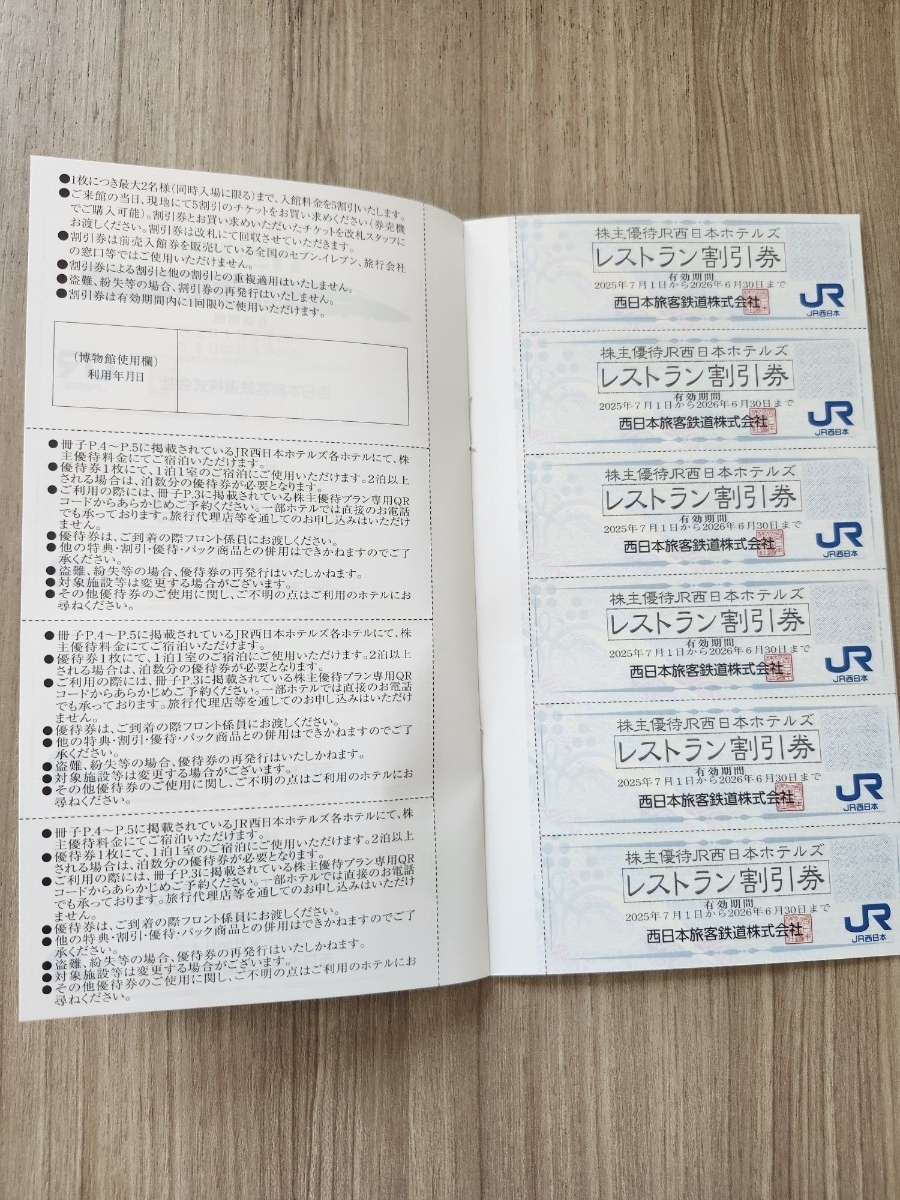 ●1枚につき最大2名様(同時入場に限る)まで、入館料金を5割引いたします。
●ご来館の当日、現地にて5割引のチケットをお買い求めください(券売機
でご購入可能)。割引券とお買い求めいただいたチケットを改札スタッフに
お渡しください。割引券は改札にて回収させていただきます。
●割引券は前売入館券を販売している全国のセブン-イレブン、旅行会社
の窓口等ではご使用いただけません。
●割引券による割引と他の割引との重複適用はいたしません。
●盗難、紛失等の場合、割引券の再発行はいたしません。
●割引券は有効期間内に1回限りご使用いただけます。
(博物館使用欄)
利用年月日
●冊子P.4〜P.5に掲載されているJR西日本ホテルズ各ホテルにて、株
主優待料金にてご宿泊いただけます。
●優待券1枚にて、1泊1室のご宿泊にご使用いただけます。2泊以上
される場合は、泊数分の優待券が必要となります。
●ご利用の際には、冊子P.3に掲載されている株主優待プラン専用QR
コードからあらかじめご予約ください。一部ホテルでは直接のお電話
でも承っております。旅行代理店等を通してのお申し込みはいただけ
ません。
●優待券は、ご到着の際フロント係員にお渡しください。
●他の特典・割引・優待・パック商品との併用はできかねますのでご了
承ください。
●盗難、紛失等の場合、優待券の再発行はいたしかねます。
●対象施設等は変更する場合がございます。
●その他優待券のご使用に関し、ご不明の点はご利用のホテルにお
尋ねください。
●冊子P.4〜P.5に掲載されているJR西日本ホテルズ各ホテルにて、株
主優待料金にてご宿泊いただけます。
●優待券1枚にて、1泊1室のご宿泊にご使用いただけます。2泊以上
される場合は、泊数分の優待券が必要となります。
●ご利用の際には、冊子P.3に掲載されている株主優待プラン専用QR
コードからあらかじめご予約ください。一部ホテルでは直接のお電話
でも承っております。旅行代理店等を通してのお申し込みはいただけ
ません。
●優待券は、ご到着の際フロント係員にお渡しください。
●他の特典・割引・優待・パック商品との併用はできかねますのでご了
承ください。
●盗難、紛失等の場合、優待券の再発行はいたしかねます。
●対象施設等は変更する場合がございます。
●その他優待券のご使用に関し、ご不明の点はご利用のホテルにお
尋ねください。
●冊子P.4〜P.5に掲載されているJR西日本ホテルズ各ホテルにて、株
主優待料金にてご宿泊いただけます。
●優待券1枚にて、1泊1室のご宿泊にご使用いただけます。2泊以上
される場合は、泊数分の優待券が必要となります。
●ご利用の際には、冊子P.3に掲載されている株主優待プラン専用QR
コードからあらかじめご予約ください。一部ホテルでは直接のお電話
でも承っております。旅行代理店等を通してのお申し込みはいただけ
ません。
●優待券は、ご到着の際フロント係員にお渡しください。
●他の特典・割引・優待・パック商品との併用はできかねますのでご了
承ください。
●盗難、紛失等の場合、優待券の再発行はいたしかねます。
●対象施設等は変更する場合がございます。
●その他優待券のご使用に関し、ご不明の点はご利用のホテルにお
尋ねください。
株主優待JR西日本ホテルズ
レストラン割引券
有効期間
2025年7月1日から2026年6月30日まで
西日本旅客鉄道株式会社
JR
JR西日本
株主優待JR西日本ホテルズ
レストラン割引券
有効期間
2025年7月1日から2026年6月30日まで
西日本旅客鉄道株式会社
JR
JR西日本
株主優待JR西日本ホテルズ
レストラン割引券
有効期間
2025年7月1日から2026年6月30日まで
西日本旅客鉄道株式会社
JR
JR西日本
株主優待JR西日本ホテルズ
レストラン割引券
有効期間
2025年7月1日から2026年6月30日まで
西日本旅客鉄道株式会社
JR
JR西日本
株主優待JR西日本ホテルズ
レストラン割引券
有効期間
2025年7月1日から2026年6月30日まで
西日本旅客鉄道株式会社
JR
JR西日本
株主優待JR西日本ホテルズ
レストラン割引券
有効期間
2025年7月1日から2026年6月30日まで
西日本旅客鉄道株式会社
JR
JR西日本